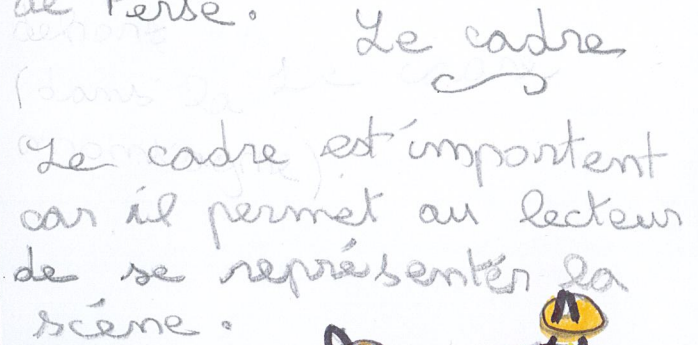 de Perse.
Le cadre
Le cadre est important
car il permet au lecteur
de se représenter la
scène.